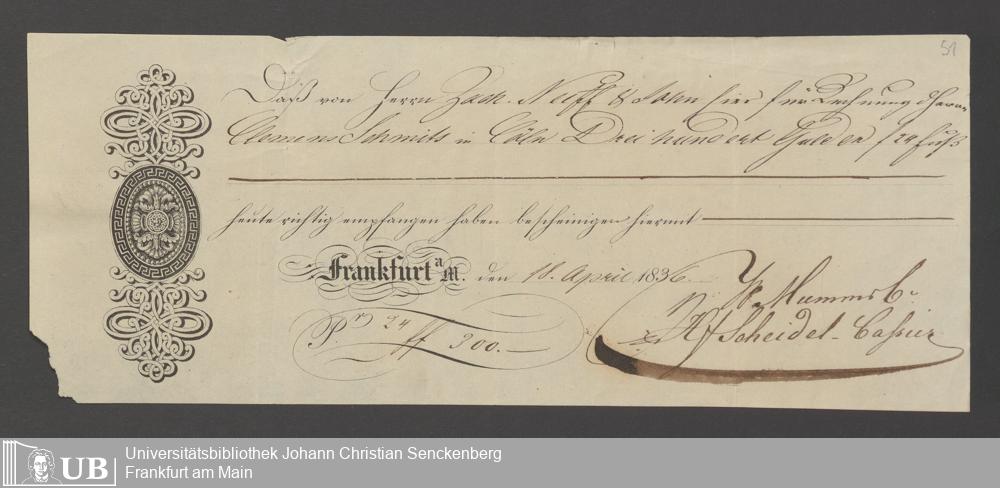 51
Daß von Herrn Zach. Neuff & Sohn hier für Rechnung Herrn
Clemens Schmitts in Cöln Drei hundert Gulden f 24 Fuß
heute richtig empfangen haben bescheinigen hiermit
Frankfurt a M. den 18. April 1836.
Pr 24 ff 300.—
Mumm & C.
Scheidel - Cassier
UB Universitätsbibliothek Johann Christian Senckenberg
Frankfurt am Main